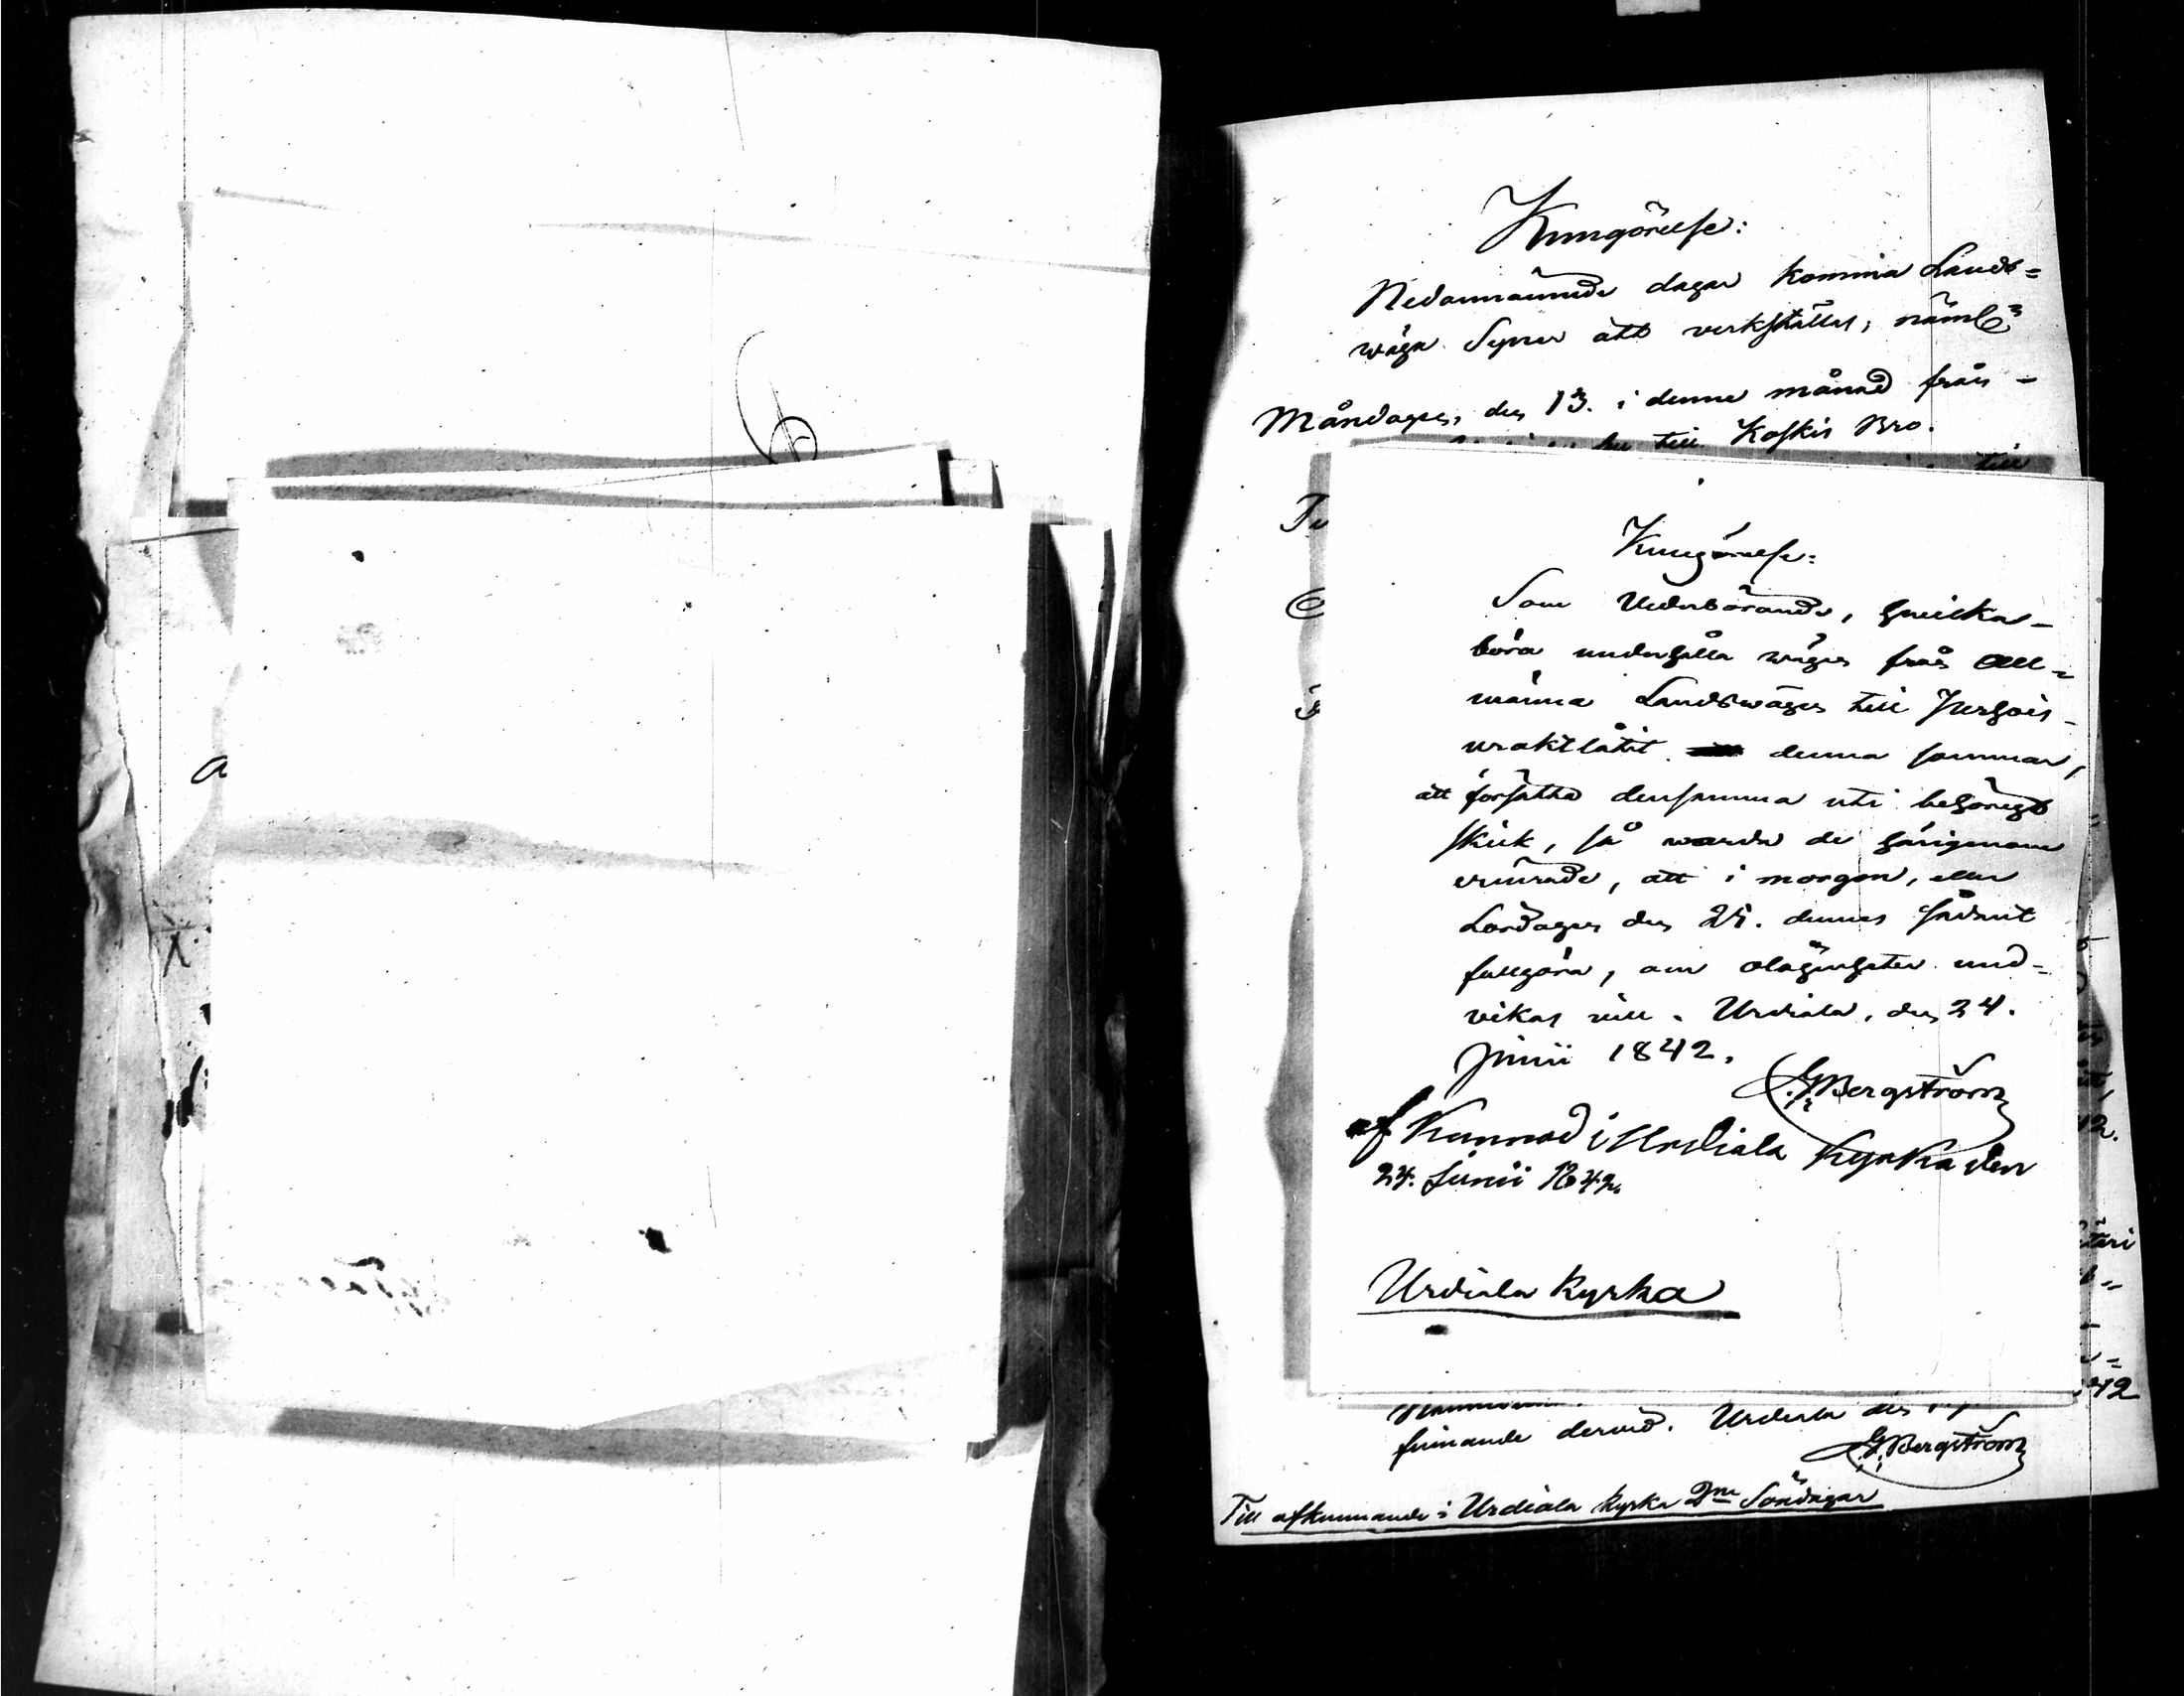 Kungörelse:
Nedannämnde dagar komma Lands-
wäga Syner att verkställas; näml:
Måndagen, den 13. i denne månad från -
till Koskis Bro.
till
Kungörelse:
Som Vederbörande, hwilka -
böra underhålla wägen från All-
männa Landswägen till
uraktlåtit denna sommar,
att försätta densamma uti behörigt
skick, så warda de härigenom
erinrade, att i morgon, eller
Lördagen den 25. dennes sådant
fullgöra, om olägenheter und-
vikas vill. Urdiala, den 24.
Junii 1842.
Bergström
af Kunnad i Urdiala Kyrka den
24. Junii 1842.
Urdiala Kyrka
finnande dervid. Urdiala den
Bergström
Till afkunnande i Urdiala kyrka 2ne Söndagar